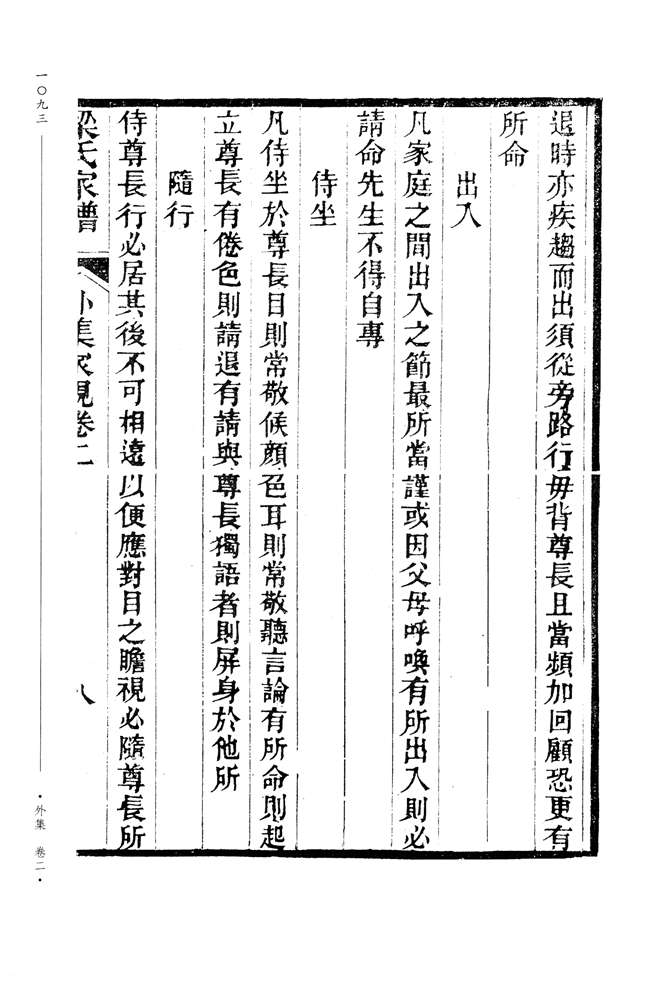 退時亦疾趨而出須從旁路行毋背尊長且當頻加回顧恐更有
所命
出入
凡家庭之間出入之節最所當謹或因父母呼喚有所出入則必
請命先生不得自專
侍坐
凡侍坐於尊長目則常敬候顏色耳則常敬聽言論有所命則起
立尊長有倦色則請退有請與尊長獨語者則屏身於他所
隨行
侍尊長行必居其後不可相遠以便應對目之瞻視必隨尊長所
梁氏家譜 外集家規卷二 八
一〇九三 ·外集 卷二·